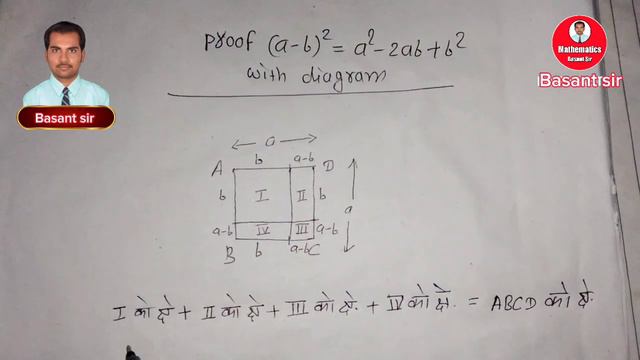 Proof (a-b)² = a² - 2ab + b²
with diagram
Mathematics
Basant Sir
Basant sir
Basant sir
a
A b a-b D
b I II b a
a-b IV III a-b
B b a-b C
I को क्षे + II को क्षे + III को क्षे. + IV को क्षे. = ABCD को क्षे.